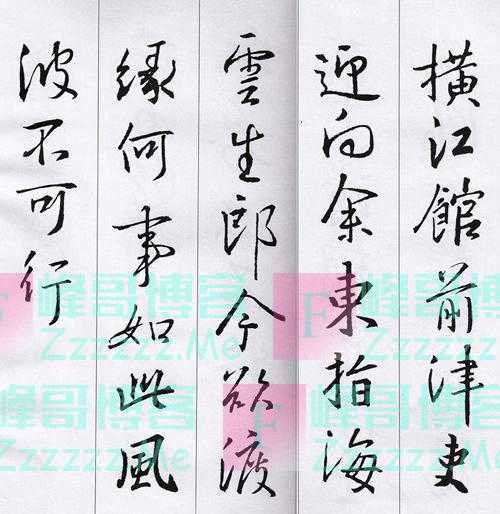 橫江館前津吏
迎向余東指海
雲生郎今欲渡
緣何事如此風
波不可行
峰哥博客
Zzzzzz.Me
峰哥博客
Zzzzzz.Me
峰哥博客
Zzzzzz.Me
峰哥博客
Zzzzzz.Me
F
F
F